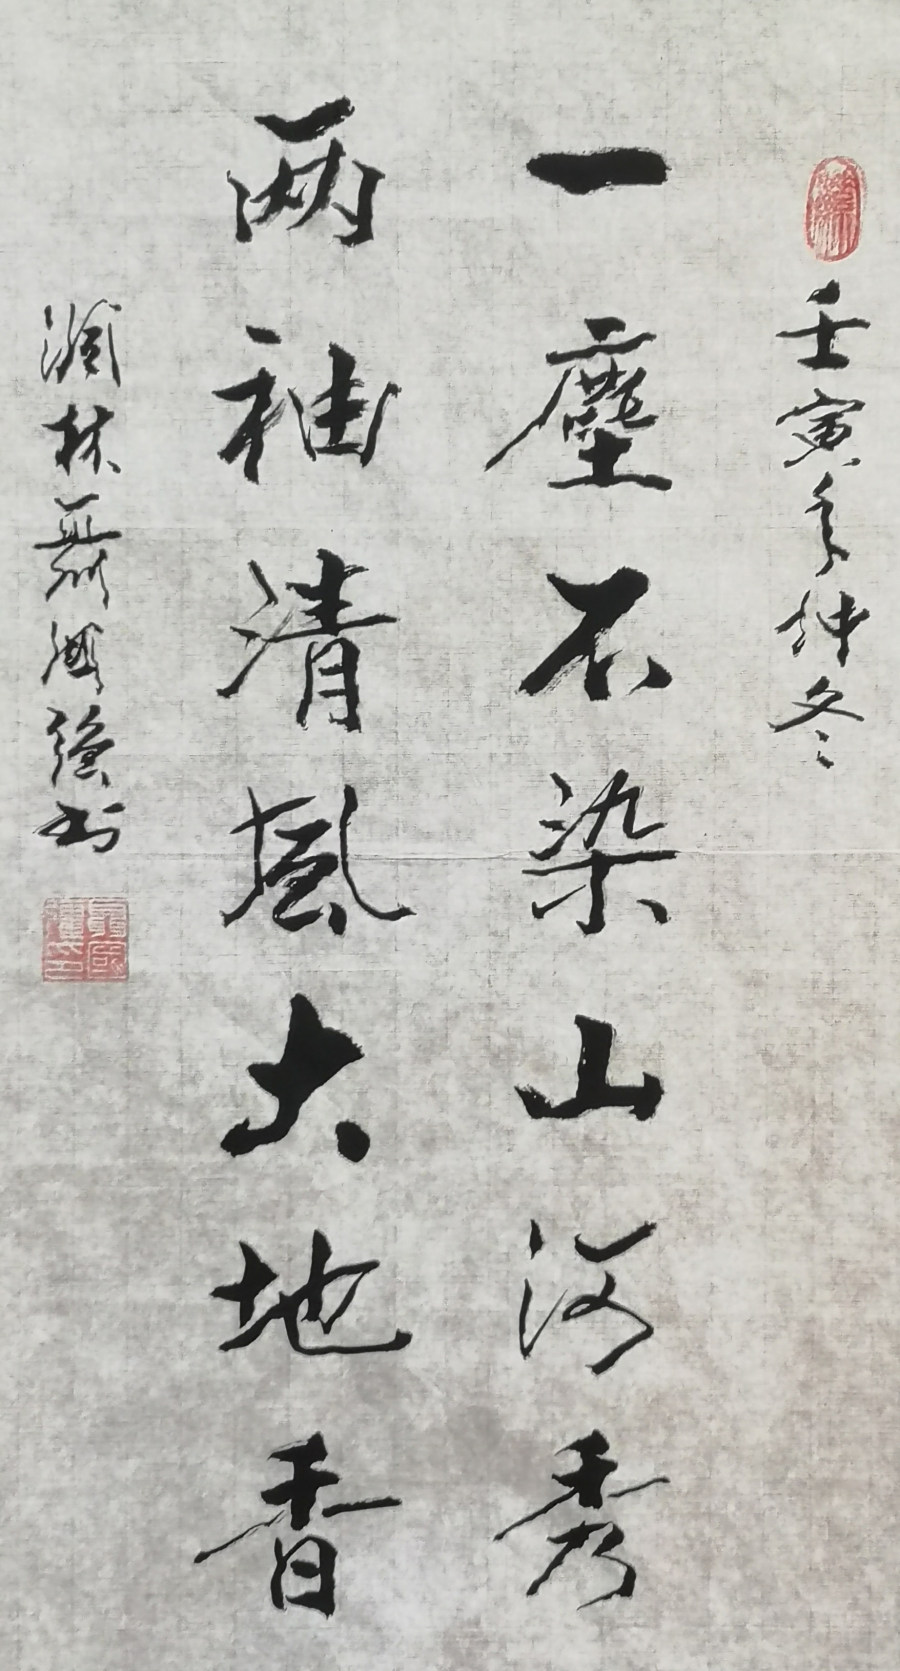 壬寅年仲冬
一塵不染山河秀
兩袖清風大地香
林聶國強书